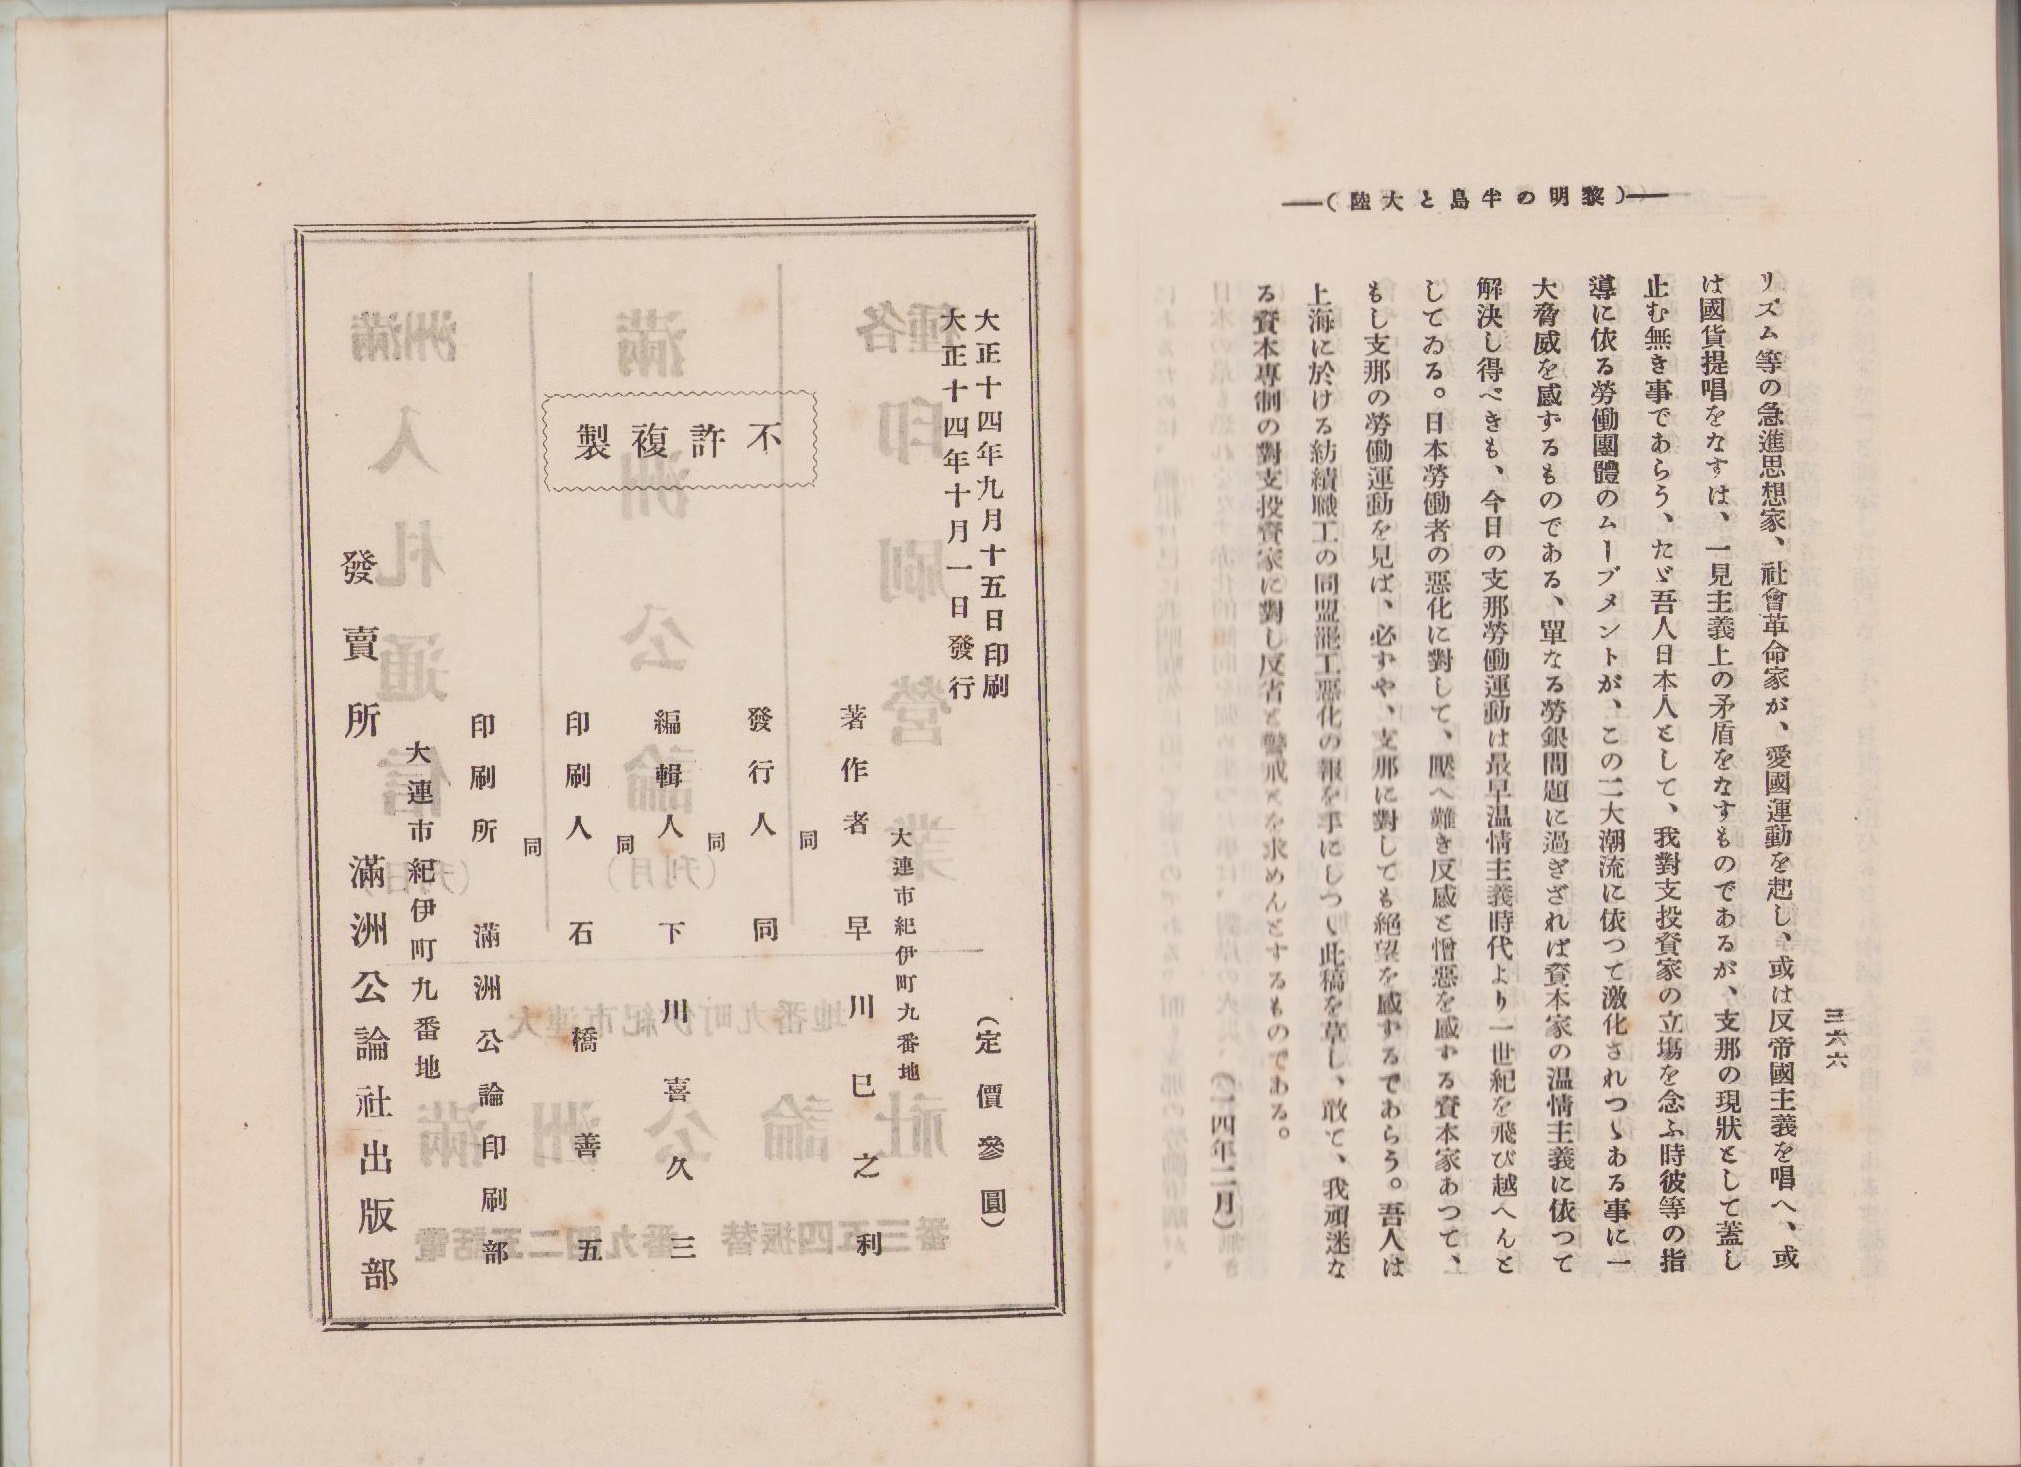 （黎明の半島と大陸）
三六六
リズム等の急進思想家、社會革命家が、愛國運動を起し、或は反帝國主義を唱へ、或
は國貨提唱をなすは、一見主義上の矛盾をなすものであるが、支那の現狀として蓋し
止む無き事であらう、たゞ吾人日本人として、我對支投資家の立塲を念ふ時彼等の指
導に依る勞働團體のムーブメントが、この二大潮流に依つて激化されつゝある事に一
大脅威を感ずるものである、單なる勞銀問題に過ぎざれば資本家の温情主義に依つて
解決し得べきも、今日の支那勞働運動は最早温情主義時代より一世紀を飛び越へんと
してゐる。日本勞働者の惡化に對して、壓へ難き反感と憎惡を感ずる資本家あつて、
もし支那の勞働運動を見ば、必ずや、支那に對しても絶望を感ずるであらう。吾人は
上海に於ける紡績職工の同盟罷工惡化の報を手にしつゝ此稿を草し、敢て、我頑迷な
る資本專制の對支投資家に對し反省と警戒とを求めんとするものである。
（一四年二月）
大正十四年九月十五日印刷
大正十四年十月一日發行
（定價參圓）
不許複製
大連市紀伊町九番地
著作者 早川巳之利
同
發行人 同
同
編輯人 下川喜久三
同
印刷人 石橋善五
同
印刷所 滿洲公論印刷部
大連市紀伊町九番地
發賣所 滿洲公論社出版部